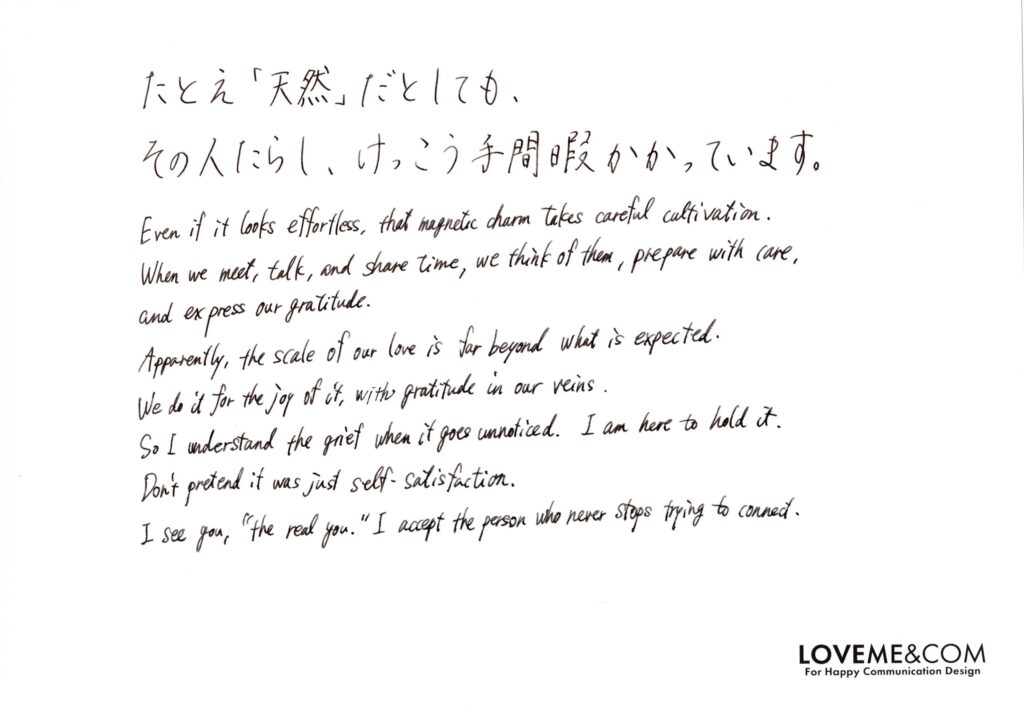 たとえ「天然」だとしても、
その人たらし、けっこう手間暇かかっています。
Even if it looks effortless, that magnetic charm takes careful cultivation.
When we meet, talk, and share time, we think of them, prepare with care,
and express our gratitude.
Apparently, the scale of our love is far beyond what is expected.
We do it for the joy of it, with gratitude in our veins.
So I understand the grief when it goes unnoticed. I am here to hold it.
Don't pretend it was just self-satisfaction.
I see you, "the real you." I accept the person who never stops trying to connect.
LOVEME&COM
For Happy Communication Design